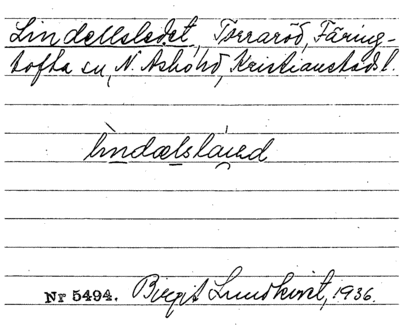 Lindellsledet, Torraröd, Färing-
tofta sn, N. Åsbo hd, Kristianstads l.
lìndælsláed
Nr 5494. Birgit Lundkvist, 1936.